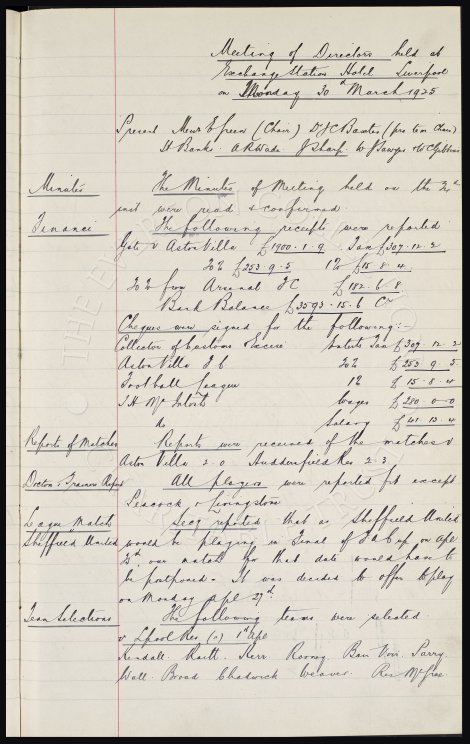 Meeting of Directors held at
Exchange Station Hotel Liverpool
on Monday 30th March 1925
Present Messrs E Green (Chair) Dr J C Baxter (pro tem Chair)
H Banks. A R Wade. J Sharp. W J Sawyer & W C Gibbins
Minutes
The Minutes of Meeting held on the 24th
inst were read & confirmed.
Finance
The following receipts were reported
Gate v Aston Villa £1900.1.9 Tax £307.12.2
20% £253.9.5 1% £15.8.4
20% from Arsenal F C £182.6.8
Bank Balance £3593.15.6 Cr
Cheques were signed for the following:-
Collector of Customs & Excise Entets Tax £307.12.2
Aston Villa F C 20% £253.9.5
Football League 1% £15.8.4
T H McIntosh Wages £280.0.0
do Salary £41.13.4
Reports of Matches
Reports were received of the matches v
Aston Villa 2.0 Huddersfield Res 2.3
Doctors & Trainers Report
All players were reported fit except
Peacock & Livingstone
League Match
Sheffield United
Secy reported that as Sheffield United
would be playing in Semi of F A Cup on Apl
our match for that date would have to
be postponed. It was decided to offer to play
on Monday Apl 27th.
Team Selections
The following teams were selected.
v L'pool Res (a) 1st Apl
Kendall Raitt. Kerr. Rooney. Bain Virr. Parry
Wall. Broad Chadwick Weaver. Res McGrae